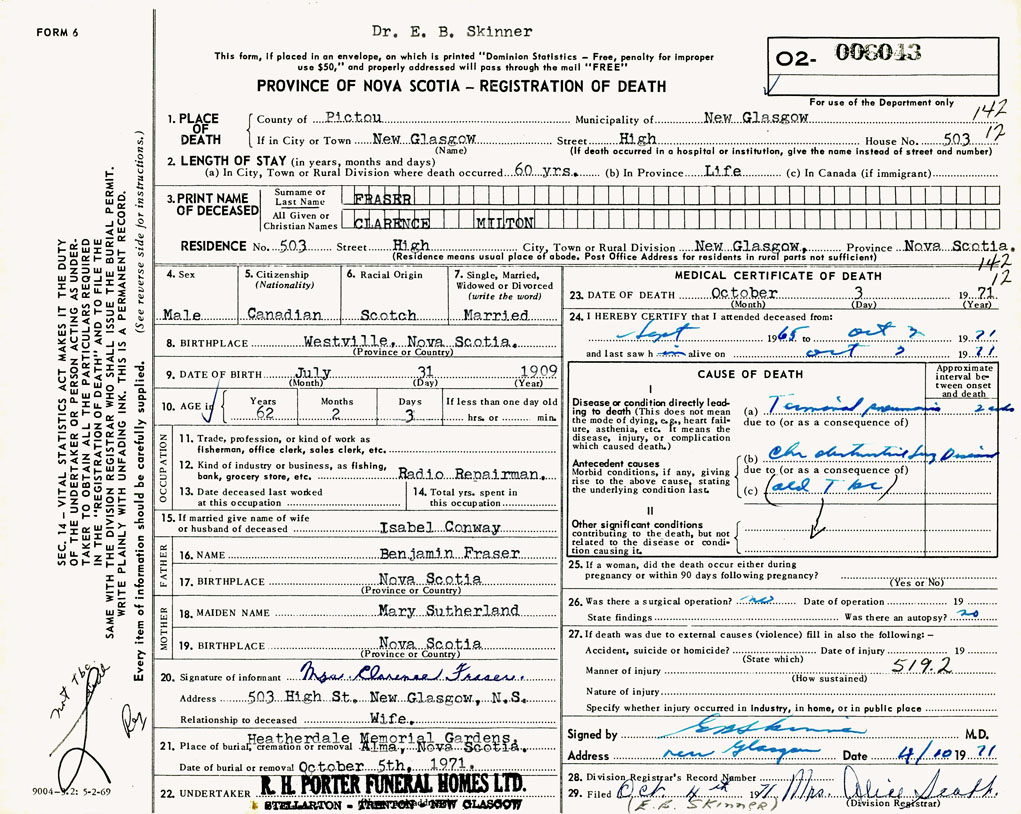 FORM 6
Dr. E. B. Skinner
This form, if placed in an envelope, on which is printed "Dominion Statistics – Free, penalty for improper
use $50," and properly addressed will pass through the mail "FREE"
PROVINCE OF NOVA SCOTIA – REGISTRATION OF DEATH
02- 006043
For use of the Department only
142
12
1. PLACE OF DEATH
County of Pictou Municipality of New Glasgow
If in City or Town New Glasgow Street High House No. 503
(Name) (If death occurred in a hospital or institution, give the name instead of street and number)
2. LENGTH OF STAY (in years, months and days)
(a) In City, Town or Rural Division where death occurred 60 yrs. (b) In Province Life (c) In Canada (if immigrant)
3. PRINT NAME OF DECEASED
Surname or Last Name FRASER
All Given or Christian Names CLARENCE MILTON
RESIDENCE No. 503 Street High City, Town or Rural Division New Glasgow, Province Nova Scotia.
(Residence means usual place of abode. Post Office Address for residents in rural parts not sufficient)
142
12
4. Sex
Male
5. Citizenship
(Nationality)
Canadian
6. Racial Origin
Scotch
7. Single, Married,
Widowed or Divorced
(write the word)
Married
8. BIRTHPLACE Westville, Nova Scotia.
(Province or Country)
9. DATE OF BIRTH July 31 1909
(Month) (Day) (Year)
10. AGE in
Years Months Days If less than one day old
62 2 3 hrs. or min.
OCCUPATION
11. Trade, profession, or kind of work as
fisherman, office clerk, sales clerk, etc.
12. Kind of industry or business, as fishing,
bank, grocery store, etc. Radio Repairman.
13. Date deceased last worked
at this occupation
14. Total yrs. spent in
this occupation
15. If married give name of wife
or husband of deceased Isabel Conway
FATHER
16. NAME Benjamin Fraser
17. BIRTHPLACE Nova Scotia
(Province or Country)
MOTHER
18. MAIDEN NAME Mary Sutherland
19. BIRTHPLACE Nova Scotia
(Province or Country)
20. Signature of informant Mrs. Clarence Fraser.
Address 503 High St., New Glasgow, N.S.
Relationship to deceased Wife.
Heatherdale Memorial Gardens,
21. Place of burial, cremation or removal Alma, Nova Scotia.
Date of burial or removal October 5th, 1971.
22. UNDERTAKER R. H. PORTER FUNERAL HOMES LTD.
STELLARTON - TRENTON - NEW GLASGOW
MEDICAL CERTIFICATE OF DEATH
23. DATE OF DEATH October 3 1971
(Month) (Day) (Year)
24. I HEREBY CERTIFY that I attended deceased from:
Sept 1965 to Oct 3 1971
and last saw him alive on Oct 3 1971
CAUSE OF DEATH
Approximate
interval be-
tween onset
and death
I
Disease or condition directly lead-
ing to death (This does not mean
the mode of dying, e.g., heart fail-
ure, asthenia, etc. It means the
disease, injury, or complication
which caused death.)
(a) Terminal pneumonia 2 wks
due to (or as a consequence of)
(b) Chr obstructive lung Disease
due to (or as a consequence of)
(c) (old Tbc)
Antecedent causes
Morbid conditions, if any, giving
rise to the above cause, stating
the underlying condition last.
II
Other significant conditions
contributing to the death, but not
related to the disease or condi-
tion causing it.
25. If a woman, did the death occur either during
pregnancy or within 90 days following pregnancy?
(Yes or No)
26. Was there a surgical operation? no Date of operation 19
State findings Was there an autopsy? no
27. If death was due to external causes (violence) fill in also the following: –
Accident, suicide or homicide? Date of injury 19
(State which)
Manner of injury 519.2
(How sustained)
Nature of injury
Specify whether injury occurred in industry, in home, or in public place
Signed by EBSkinner M.D.
Address New Glasgow Date 4/10 1971
28. Division Registrar's Record Number
29. Filed Oct. 4th 1971 Mrs. Alice Seath.
(E.B. SKINNER) (Division Registrar)
SEC. 14 – VITAL STATISTICS ACT MAKES IT THE DUTY
OF THE UNDERTAKER OR PERSON ACTING AS UNDER-
TAKER TO OBTAIN ALL THE PARTICULARS REQUIRED
IN THE "REGISTRATION OF DEATH" AND TO FILE THE
SAME WITH THE DIVISION REGISTRAR WHO SHALL ISSUE THE BURIAL PERMIT.
WRITE PLAINLY WITH UNFADING INK. THIS IS A PERMANENT RECORD.
Every item of information should be carefully supplied. (See reverse side for instructions.)
not Tbc.
Reg
5-2-69